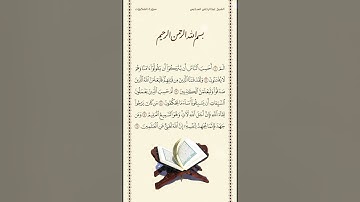 سورة العنكبوت
بسم الله الرحمن الرحيم
الٓمٓ ۝١ أَحَسِبَ ٱلنَّاسُ أَن يُتْرَكُوٓا۟ أَن يَقُولُوٓا۟ ءَامَنَّا وَهُمْ
لَا يُفْتَنُونَ ۝٢ وَلَقَدْ فَتَنَّا ٱلَّذِينَ مِن قَبْلِهِمْ فَلَيَعْلَمَنَّ ٱللَّهُ ٱلَّذِينَ
صَدَقُوا۟ وَلَيَعْلَمَنَّ ٱلْكَـٰذِبِينَ ۝٣ أَمْ حَسِبَ ٱلَّذِينَ يَعْمَلُونَ
ٱلسَّيِّـَٔاتِ أَن يَسْبِقُونَا سَآءَ مَا يَحْكُمُونَ ۝٤ مَن كَانَ يَرْجُوا۟
لِقَآءَ ٱللَّهِ فَإِنَّ أَجَلَ ٱللَّهِ لَـَٔاتٍ وَهُوَ ٱلسَّمِيعُ ٱلْعَلِيمُ ۝٥ وَمَن
جَـٰهَدَ فَإِنَّمَا يُجَـٰهِدُ لِنَفْسِهِۦٓ إِنَّ ٱللَّهَ لَغَنِىٌّ عَنِ ٱلْعَـٰلَمِينَ ۝٦